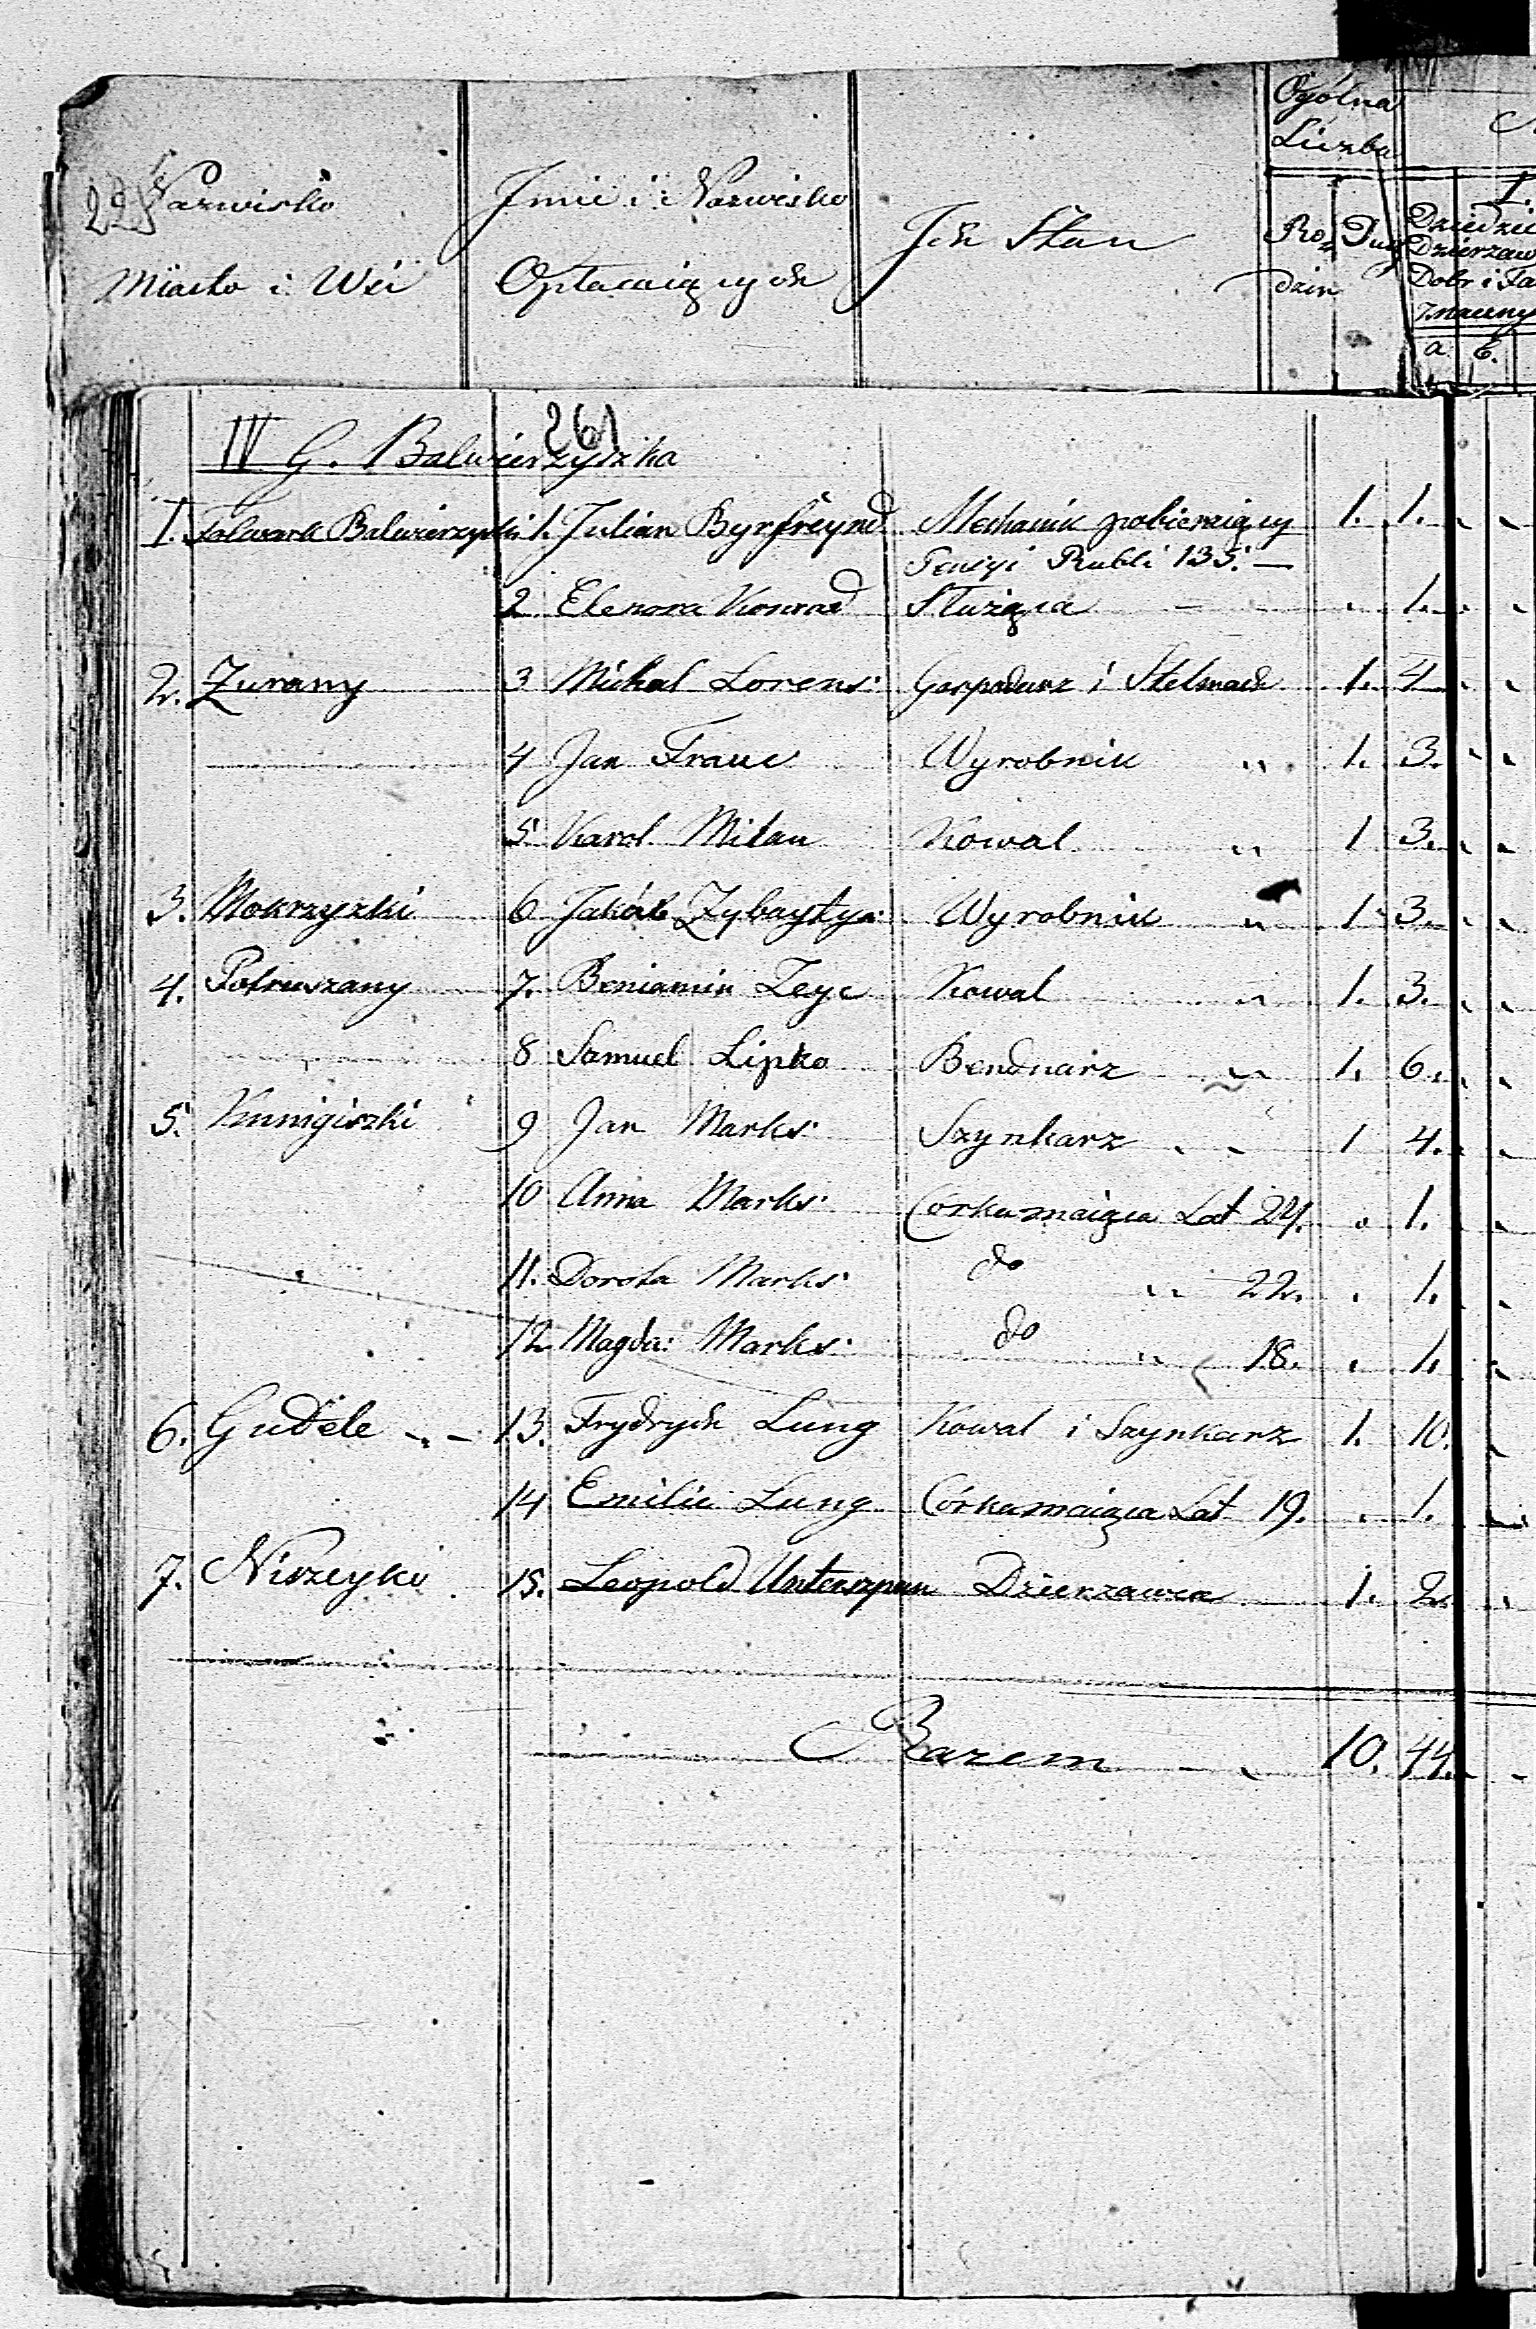 Nazwisko
Miasto i Wsi
Jmie i Nazwisko
Opłacaiących
Jch Stan
Ogólna
Liczba
Ro
dzin
Dusz
1.
Dziedzic
Dzierzaw
Dobr i Fa
Znaczny
a. b.
261
IV G. Balwierzyszka
1. Folwark Balwierzyszki 1. Julian Byrfreynd Mechanik pobieraiący 1. 1.
Pensyi Rubli 135.
2 Eleonora Konrad Służąca 1.
2. Zurany 3 Michal Lorens: Gospodarz i Stelmach 1. 4
4 Jan Franc Wyrobnik " 1. 3.
5 Karol Milau Kowal " 1 3.
3. Mokrzyzki 6 Jakób Zybaytys: Wyrobnik " 1 3.
4. Potruszany 7. Beniamin Zeyc Kowal " 1. 3.
8 Samuel Lipko Bendnarz " 1. 6.
5. Kunigiszki 9 Jan Marks: Szynkarz 1 4.
10 Anna Marks: Córka maiąca Lat 24. 1.
11. Dorota Marks: do " 22. 1.
12 Magda: Marks: do " 18. 1.
6. Gudele 13. Frydrych Lung Kowal i Szynkarz 1. 10.
14 Emilie Lung Córka maiąca Lat 19. 1.
7. Niszeyki 15. Leopold Unterszpan Dzierzawca 1. 2.
Razem 10. 44.